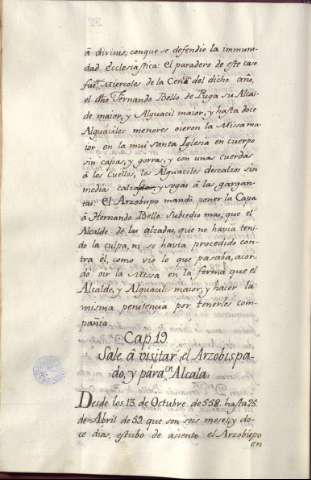 á divinis, conque se defendio la immuni-
dad Ecclesiastica: El paradero de este caso
fue Miercoles de la Ceni.ª del dicho año,
el dho Fernando Bello de Puga su Alcal-
de maior, y Alguacil maior, y hasta doce
Alguaciles menores oieron la Missa ma-
ior en la mui Santa Iglesia en cuerpo
sin capas, y gorras, y con unas cuerdas
á los cuellos, los Alguaciles descalzos sin
medias calzas y sogas á las gargan-
tas. El Arzobispo mandó poner la Capa
á Hernando Bello. Subcedio mas, que el
Alcalde de las alzadas, que no havia teni-
do la culpa, ni se havia procedido con-
tra él, como vio lo que pasaba, acor-
dó oir la Missa en la forma que el
Alcalde, y Alguacil maior, y hacer la
misma penitencia por tenerles com-
pañia.
Cap. 19
Sale á visitar el Arzobispa-
do, y para Alcala
Desde los 13. de Octubre de 558. hasta 25.
de Abril de 59. que son seis meses, y do-
ce dias, estubo de asiento el Arzobispo
en